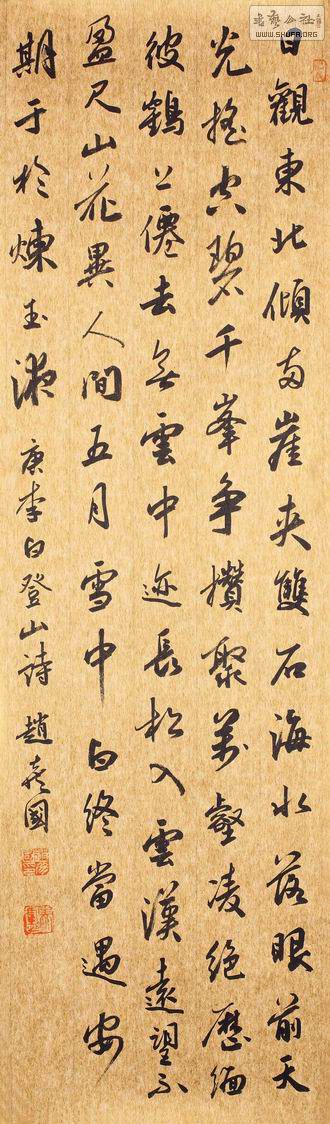 書藝公社
WWW.SHUFA.ORG
日觀東北傾兩崖夾雙石海水落眼前天
光搖空碧千峯争攢聚萬壑凌絶歷緬
彼鶴上僊去無雲中迹長松入雲漢遠望不
盈尺山花異人間五月雪中白終當遇安
期于於煉玉液 唐李白登山詩 趙國